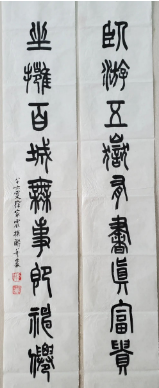 臥游五嶽有書眞富貴
坐擁百城無事卽神僊